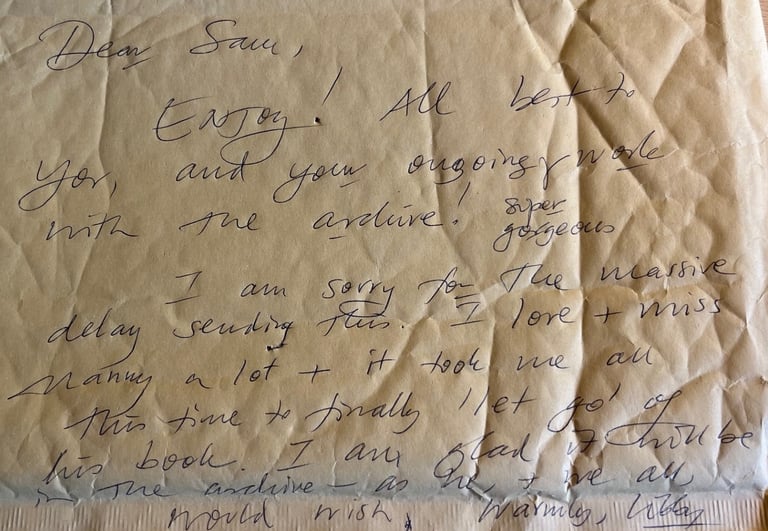 Dear Sam,
Enjoy! All best to
You, and your ongoing work
with the archive! super
gorgeous
I am sorry for the massive
delay sending this. I love + miss
Manny a lot + it took me all
this time to finally 'let go' of
his book. I am glad it will be
in the archive - as he, + we all,
would wish. Warmly,